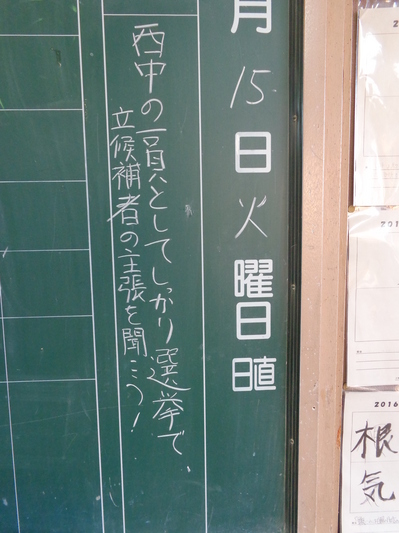 月15日火曜日 日直
西中の一員としてしっかり選挙で、
立候補者の主張を聞こう！
2016
根気